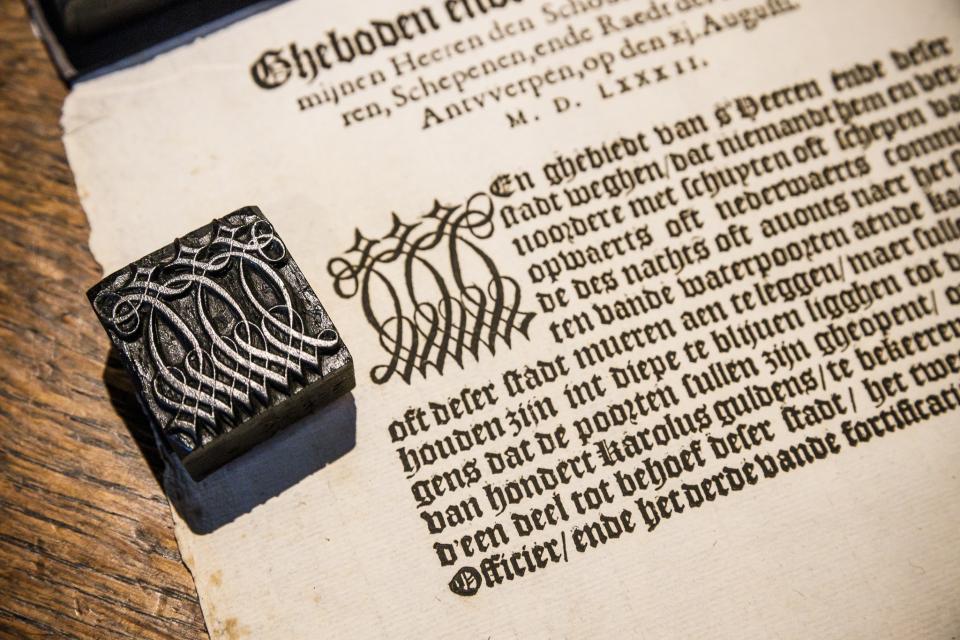 Gheboden ende
mijnen Heeren den Schou
ren, Schepenen, ende Raedt der
Antvverpen, op den xj. Augusti.
M. D. LXXXII.
MEn ghebiedt van s'Heeren ende deser
stadt weghen/dat niemandt hem en ver-
noordere met schuyten oft schepen va
opwaerts oft nederwaerts comm
de des nachts oft auonts naer het
ten vande waterpoorten aende ka
oft deser stadt mueren aen te leggen/maer sulle
houden zijn int diepe te blijuen ligghen tot d
gens dat de poorten sullen zijn gheopent/ o
van hondert Karolus guldens/te bekeeren
d'een deel tot behoef deser stadt/ het twe
Officier/ende het derde vande fortificati